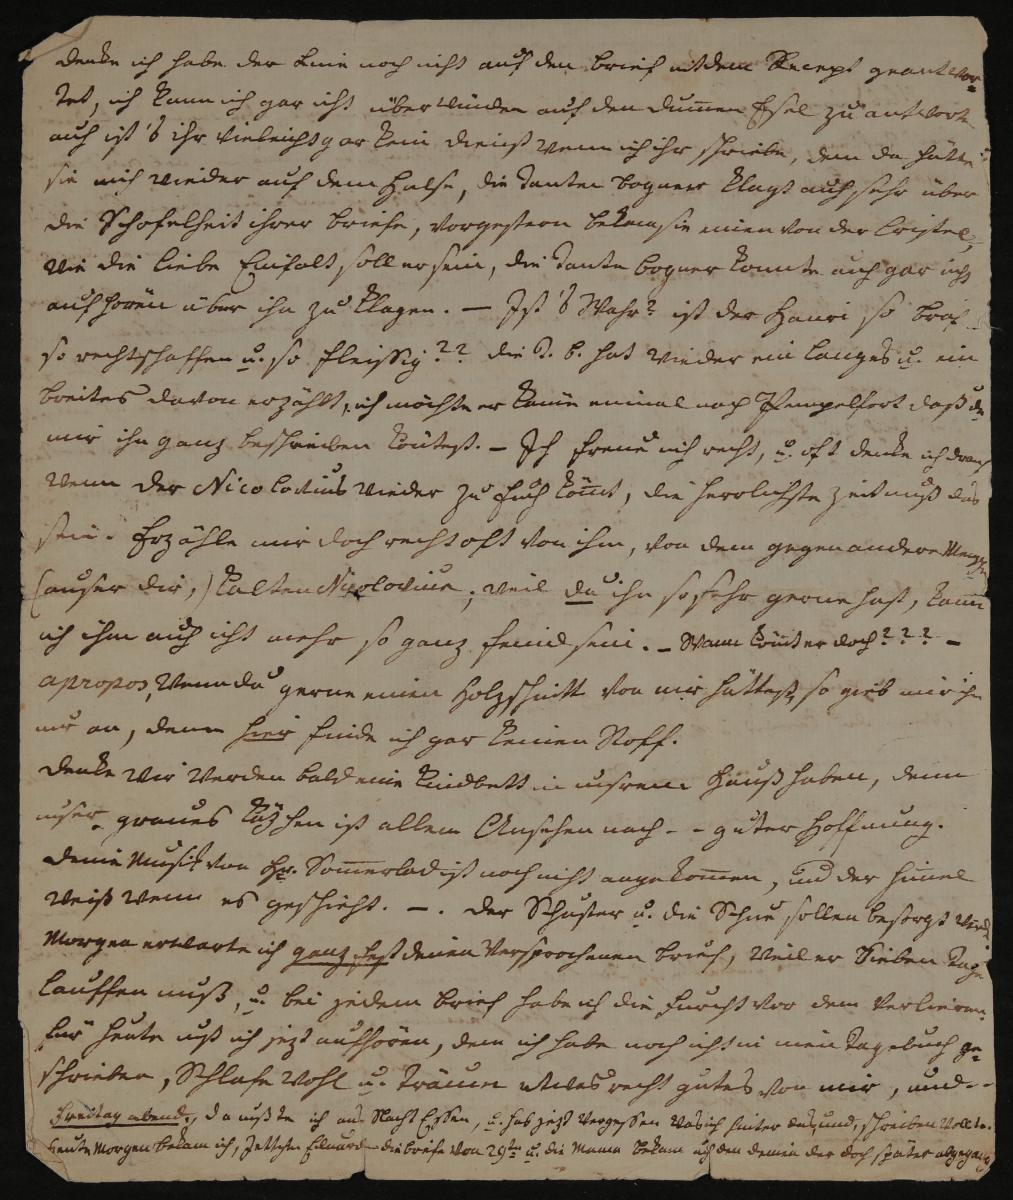 Denke ich habe der Line noch nicht auf den Brief mit dem Recept geantwor=
tet, ich kann mich gar nicht überwinden auf den dummen Esel zu antworte
auch ist's ihr vieleicht gar kein dienst wenn ich ihr schriebe, denn da hätte
sie mich wieder auf dem Halse, die Tanten Bogner klagt auch sehr über
die Schofelheit ihrer briefe, vorgestern bekam sie einen von der Cristel,
wie die liebe Einfalt soll er sein, die Tante Bogner konnte auch gar nicht
aufhören über ihn zu klagen. — Ist's Wahr? ist der Hanri so brav
so rechtschaffen u. so fleissig?? die T. B. hat wieder ein langes u. ein
breites davon erzählt, ich möchte er käme einmal nach Pempelfort daß du
mir ihn ganz beschreiben köntest. — Ich freue mich recht, u. oft denke ich drauf
wenn der Nicolovius wieder zu Euch kömt, die herrlichste Zeit muß das
sein. Erzähle mir doch recht oft von ihm, von dem gegen andere
(auser dir,) kalten Nicolovius, weil du ihn so sehr gerne hast, kann
ich ihm auch nicht mehr so ganz feind sein. — Wann kömt er doch??? —
apropos, wenn du gerne einen Holzschnitt von mir hättest, so gieb mir ihn
nur an, denn hier finde ich gar keinen Stoff.
Denke wir werden bald eine Kindbett in unsrem Hauß haben, denn
unser graues Käzchen ist allem Ansehen nach - - guter Hoffnung.
Deine Musik von Hr. Somerlad ist noch nicht angekommen, und der Himel
weiß wenn es geschieht. —. der Schuster u. die Schue sollen besorgt werd.
Morgen erwarte ich ganz fest deinen Versprochenen brief, weil er Sieben Tage
lauffen muß, u. bei jedem brief habe ich die Furcht vor dem Verlieren.
Für heute muß ich jezt aufhören, denn ich habe noch nicht in mein Tagebuch ge=
schrieben, Schlafe wohl u. träume etwas recht gutes von mir, und - -
Freitag abend, da mußte ich ans Nacht Essen, u. hab jezt vergessen was ich hinter das und, schreiben wollte.
Heute Morgen bekam ich, Jettchen Eduard die briefe vom 29ten u. die Mama bekam auch den deinen der doch später abgegang